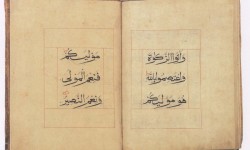 واتوا الزكوة
واعتصموا بالله
هو موليكم
موليكم
فنعم المولى
ونعم النصير